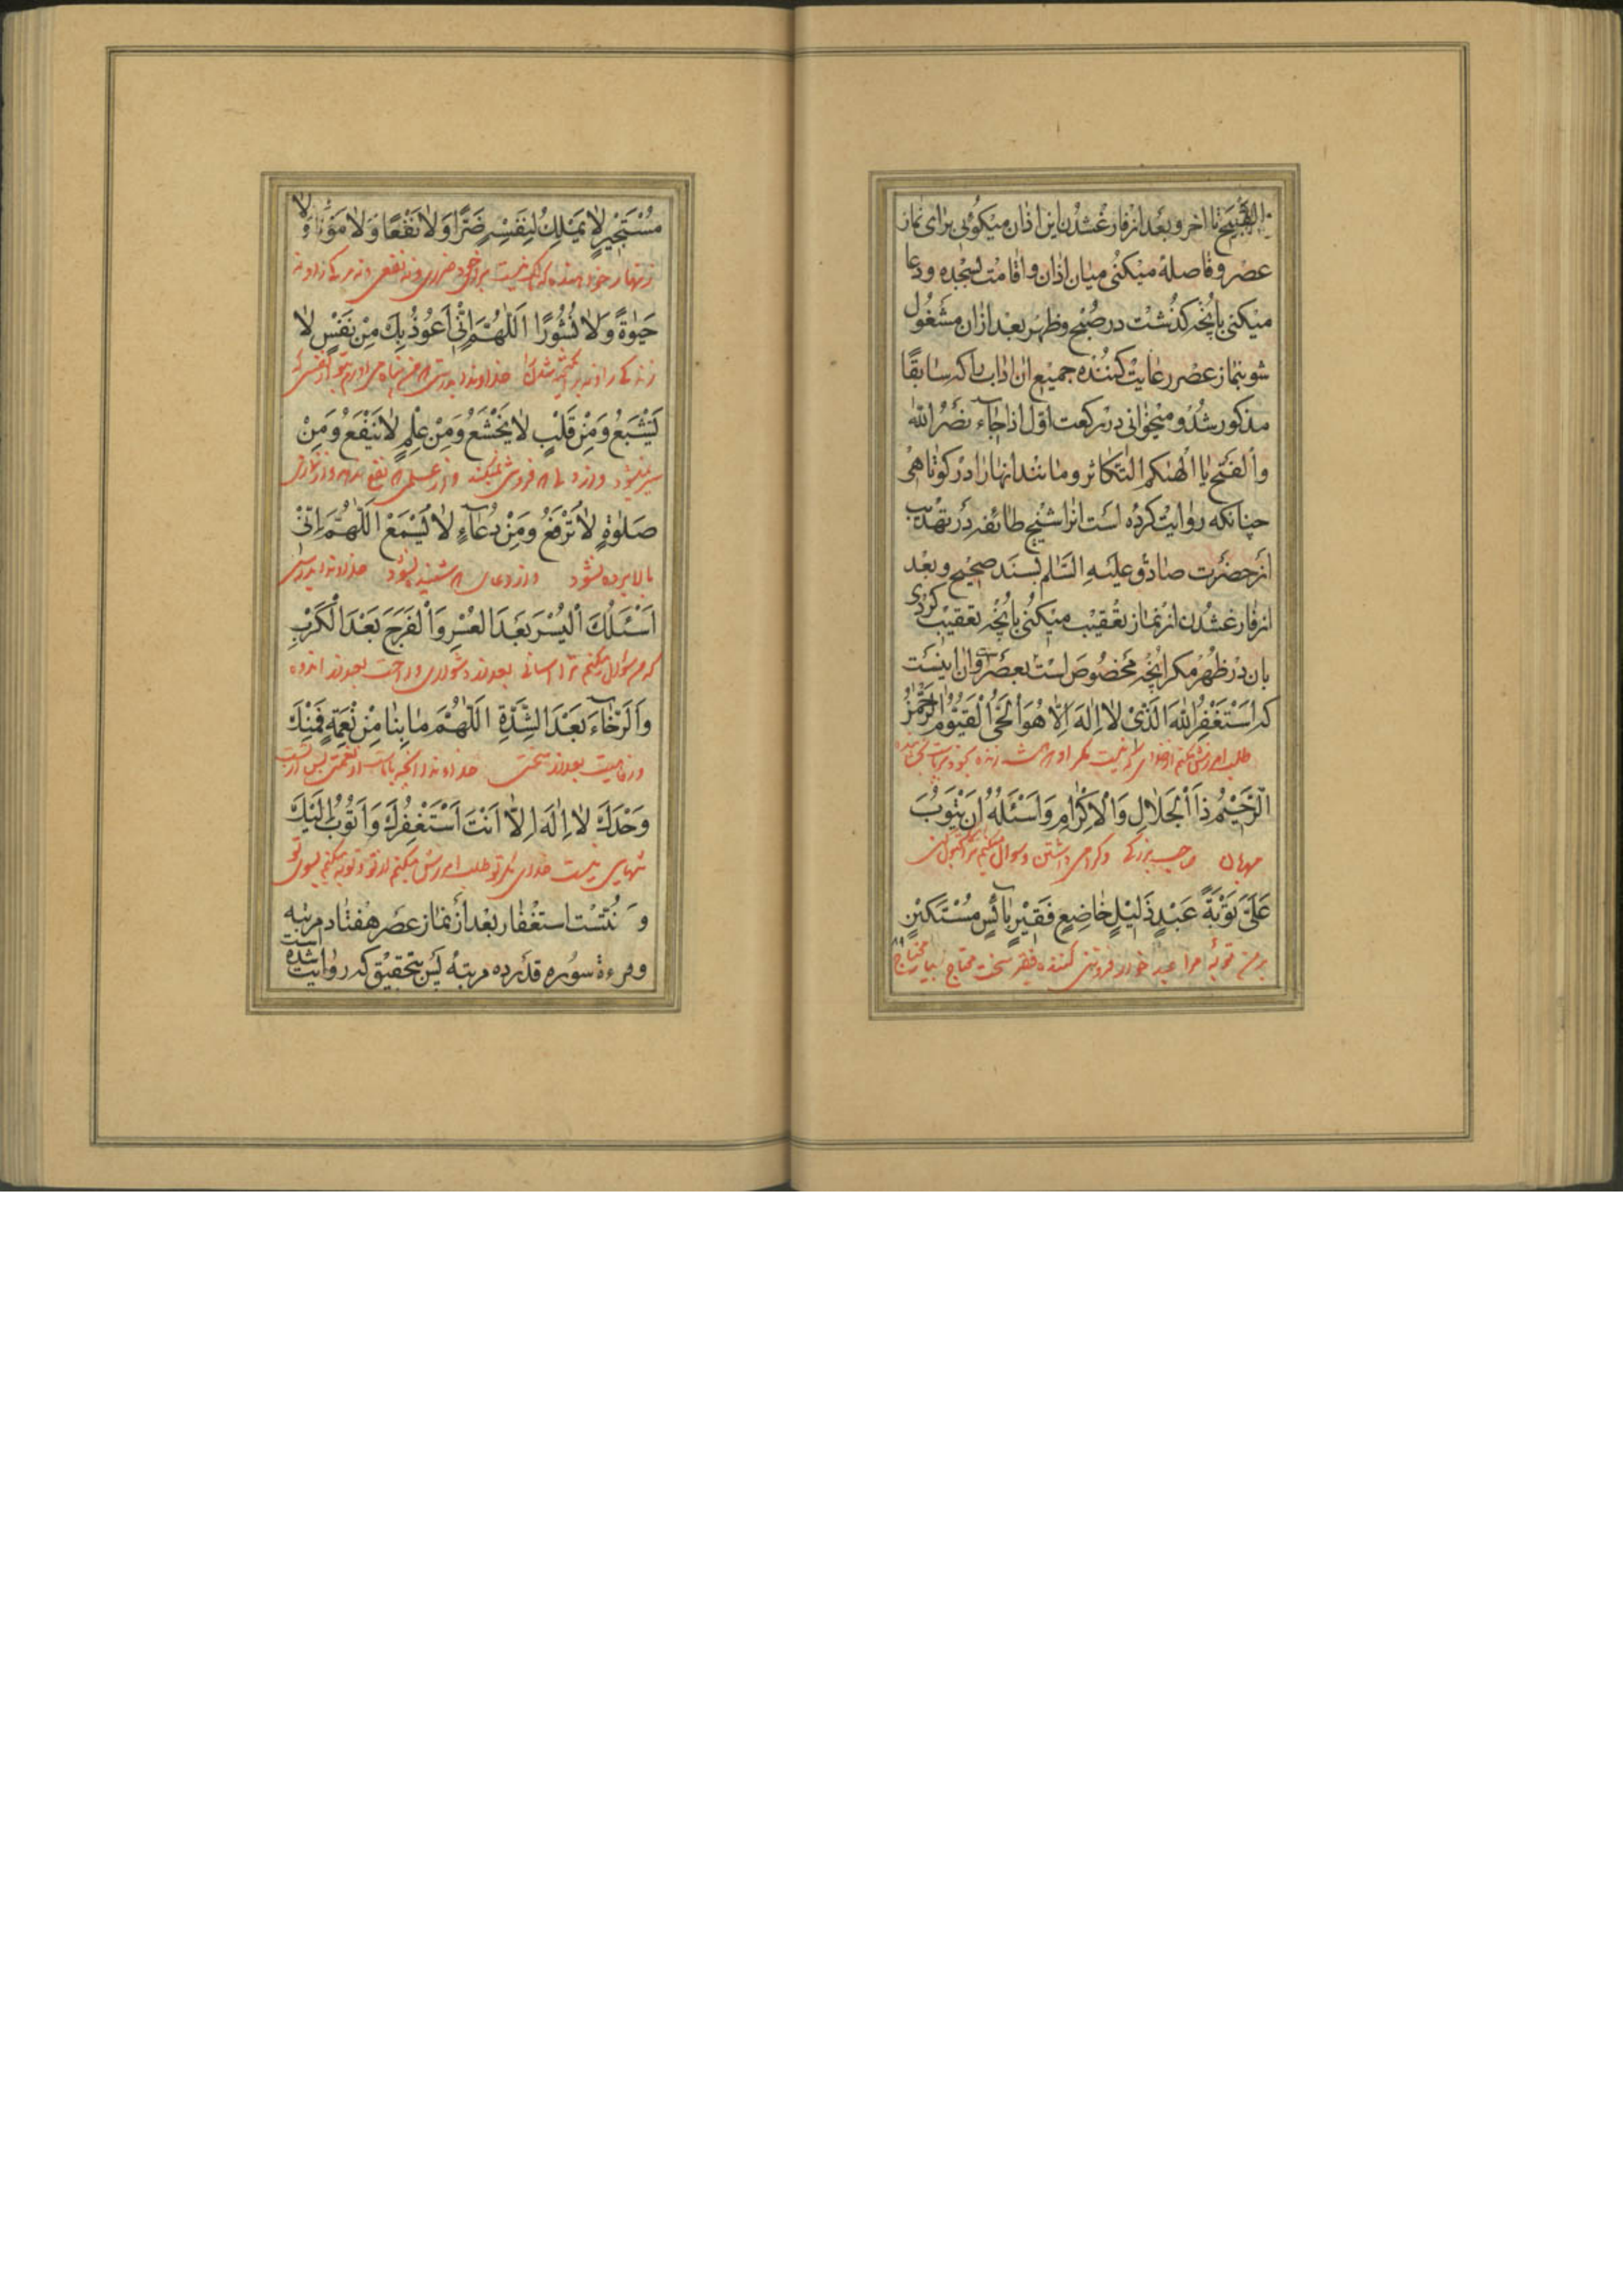 القبیح تا اخر و بعد از فارغ شدن این اذان میکوئی برای نماز
عصر و فاصله میکنی میان اذان و اقامت بسجده و دعا
میکنی بانچه کذشت در صبح و ظهر بعد ازان مشغول
شو بنماز عصر رعایت کننده جمیع ان اداب را که سابقا
مذکور شد و میخوانی در رکعت اول اذا جاء نصر الله
والفتح یا الهیکم التکاثر و مانند انها را در کوتاهی
چنانکه روایت کرده است انرا شیخ طائفه در تهذیب
از حضرت صادق علیه السلم بسند صحیح و بعد
از فارغ شدن از نماز تعقیب میکنی بانچه تعقیب کردی
بان در ظهر مکر انچه مخصوص است بعصر و ان اینست
که اَسْتَغْفِرُ اللهَ الَّذی لا اِلهَ اِلّا هُوَ الْحَیُّ الْقَیُّومُ الرَّحْمنُ
طلب امرزش میکنم از خدای که نیست مکر او همیشه زنده
الرَّحیمُ ذَا الْجَلالِ وَالْاِکْرامِ وَاَسْئَلُهُ اَنْ یَتُوبَ
مهربان صاحب بزرکی و کرامی داشتن و سوال میکنم
عَلَیَّ تَوْبَةَ عَبْدٍ ذَلیلٍ خاضِعٍ فَقیرٍ بائِسٍ مُسْتَکینٍ
بر من توبه فروتنی کننده فقیر سخت محتاج بسیار محتاج
مُسْتَجیرٍ لا یَمْلِکُ لِنَفْسِهِ ضَرًّا وَلا نَفْعًا وَلا مَوْتًا وَلا
زنهار خواهنده که مالک نیست برای خود ضرری و نه نفعی و نه مرکی را و نه
حَیوةً وَلا نُشُورًا اَللّهُمَّ اِنّی اَعُوذُ بِکَ مِنْ نَفْسٍ لا
زندکی را و نه برانکیخته شدن خداوندا بدرستی که من پناه می اورم بتو از نفسی که
تَشْبَعُ وَمِنْ قَلْبٍ لا یَخْشَعُ وَمِنْ عِلْمٍ لا یَنْفَعُ وَمِنْ
سیر نمیشود و از دلی که فروتنی نمیکند و از علمی که نفع ندهد و از نمازی
صَلوةٍ لا تُرْفَعُ وَمِنْ دُعاءٍ لا یُسْمَعُ اَللّهُمَّ اِنّی
بالا برده نشود و از دعای که شنیده نشود خداوندا بدرستی
اَسْئَلُکَ الْیُسْرَ بَعْدَ الْعُسْرِ وَالْفَرَجَ بَعْدَ الْکَرْبِ
که من سؤال میکنم ترا اسانی بعد از دشواری و راحت بعد از اندوه
وَالرَّخاءَ بَعْدَ الشِّدَّةِ اَللّهُمَّ ما بِنا مِنْ نِعْمَةٍ فَمِنْکَ
و رفاهیت بعد از سختی خداوندا انچه با ماست از نعمتی پس از تست
وَحْدَکَ لا اِلهَ اِلّا اَنْتَ اَسْتَغْفِرُکَ وَاَتُوبُ اِلَیْکَ
تنهایی نیست خدای مکر تو طلب امرزش میکنم از تو و توبه میکنم بسوی تو
و سُنّتست استغفار بعد از نماز عصر هفتاد مرتبه
و قرءة سوره قدر ده مرتبه پس بتحقیق که روایت شده است